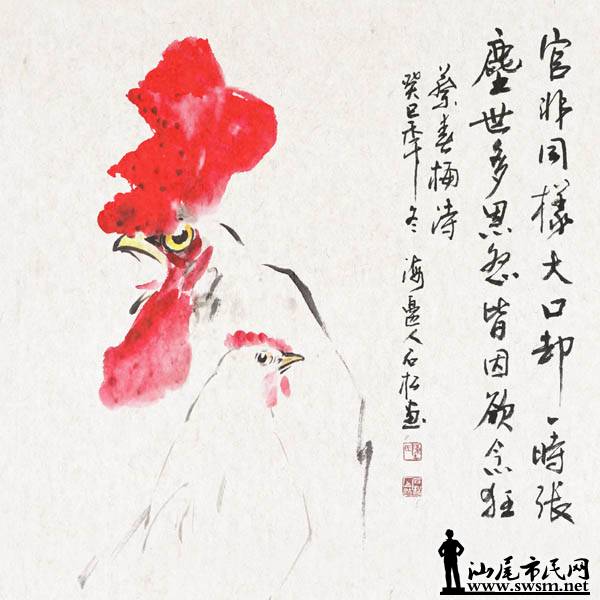 官非同樣大口却一時張
塵世多恩怨皆因欲念狂
蔡春詩
癸巳年冬 海邊人石松畫
汕尾市民网
www.swsm.net